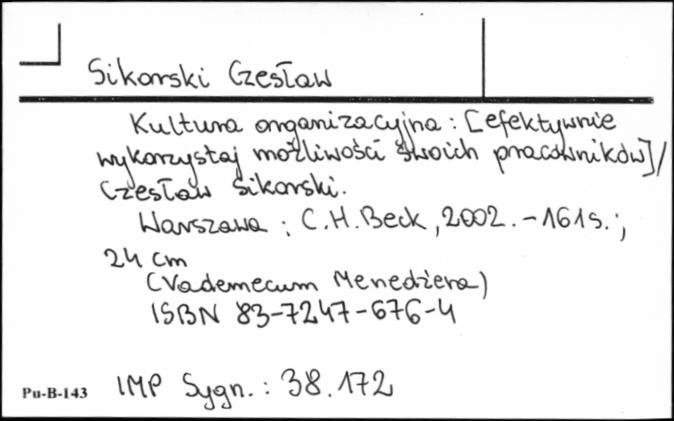 Sikorski Czesław
Kultura organizacyjna : [efektywnie
wykorzystaj możliwości swoich pracowników] /
Czesław Sikorski.
Warszawa : C.H. Beck, 2002. - 161 s. ;
24 cm
(Vademecum Menedżera)
ISBN 83-7247-676-4
Pu-B-143 IMP Sygn. : 38.172